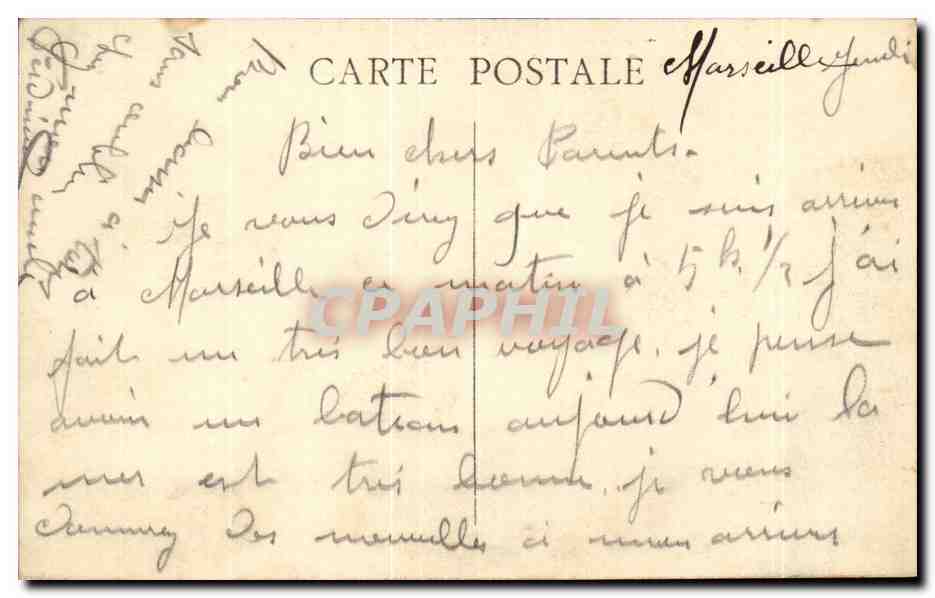 CARTE POSTALE
Marseille Jeudi
Bien chers Parents.
Je vous direz que je suis arriver
a Marseille ce matin à 5 h. 1/2 j'ai
fait un très bon voyage, je pense
avoir un bateau aujourd hui la
mer est très bonne, je vous
donnerez des nouvelles a mon arriver
CPAPHIL